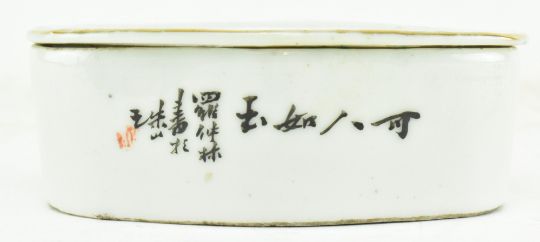 可人如玉
羅仲林
書於
珠山